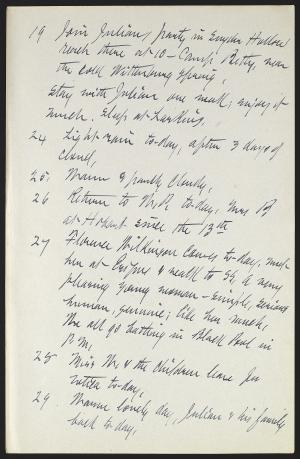 19 Join Julian's party in Snyder Hollow
reach there at 10 - Camp Betsy, near
the cold Wittenburg spring,
Stay with Julian one week; enjoy it
much. Sleep at Larkins,
24 Light rain to-day, after 3 days of
cloud,
25 Warm & partly cloudy,
26 Return to W.P. to-day, Mrs B
at Hobart since the 13th
27 Florence Wilkinson comes to-day, meet
her at & walk to Sh, a very
pleasing young woman - simple, serious
human, genuine; like her much,
We all go bathing in Black Pool in
P.M.
28 Miss W. & the children leave
to-day,
29 Warm lovely day, Julian & his family
back to-day,